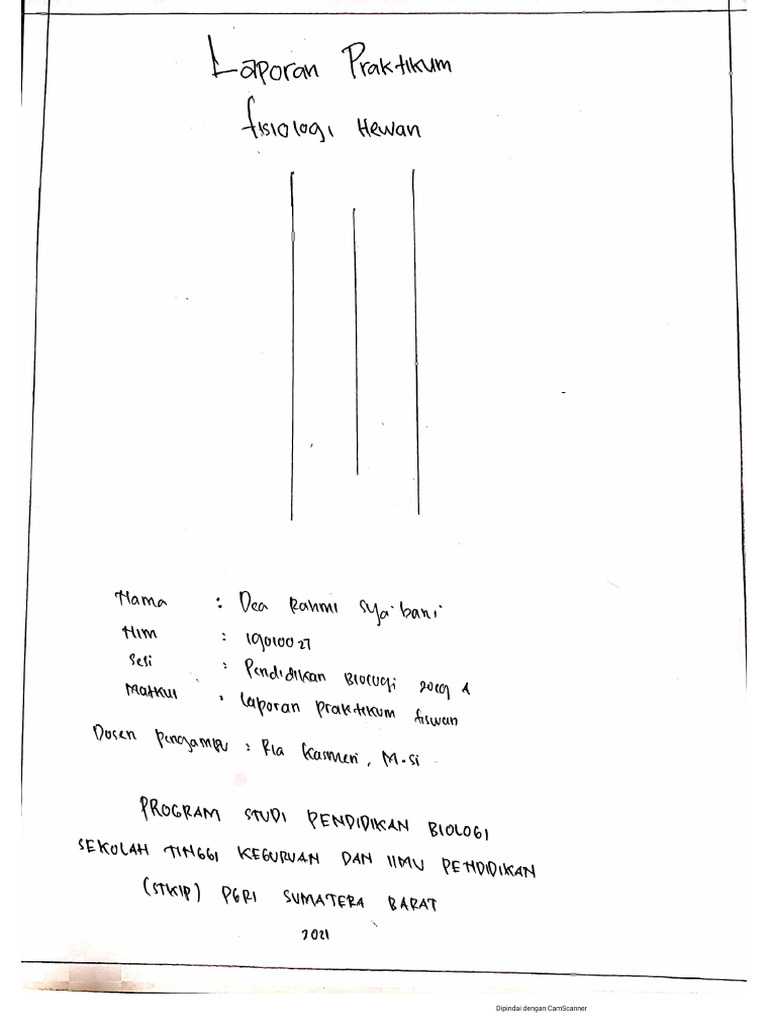 Laporan Praktikum
fisiologi Hewan
Nama : Dea Rahmi Sya'bani
Nim : 19010027
Sesi : Pendidikan Biologi 2019 A
Matkul : Laporan praktikum fiswan
Dosen pengampu : Ria Kasmeri, M.si
PROGRAM STUDI PENDIDIKAN BIOLOGI
SEKOLAH TINGGI KEGURUAN DAN ILMU PENDIDIKAN
(STKIP) PGRI SUMATERA BARAT
2021
Dipindai dengan CamScanner